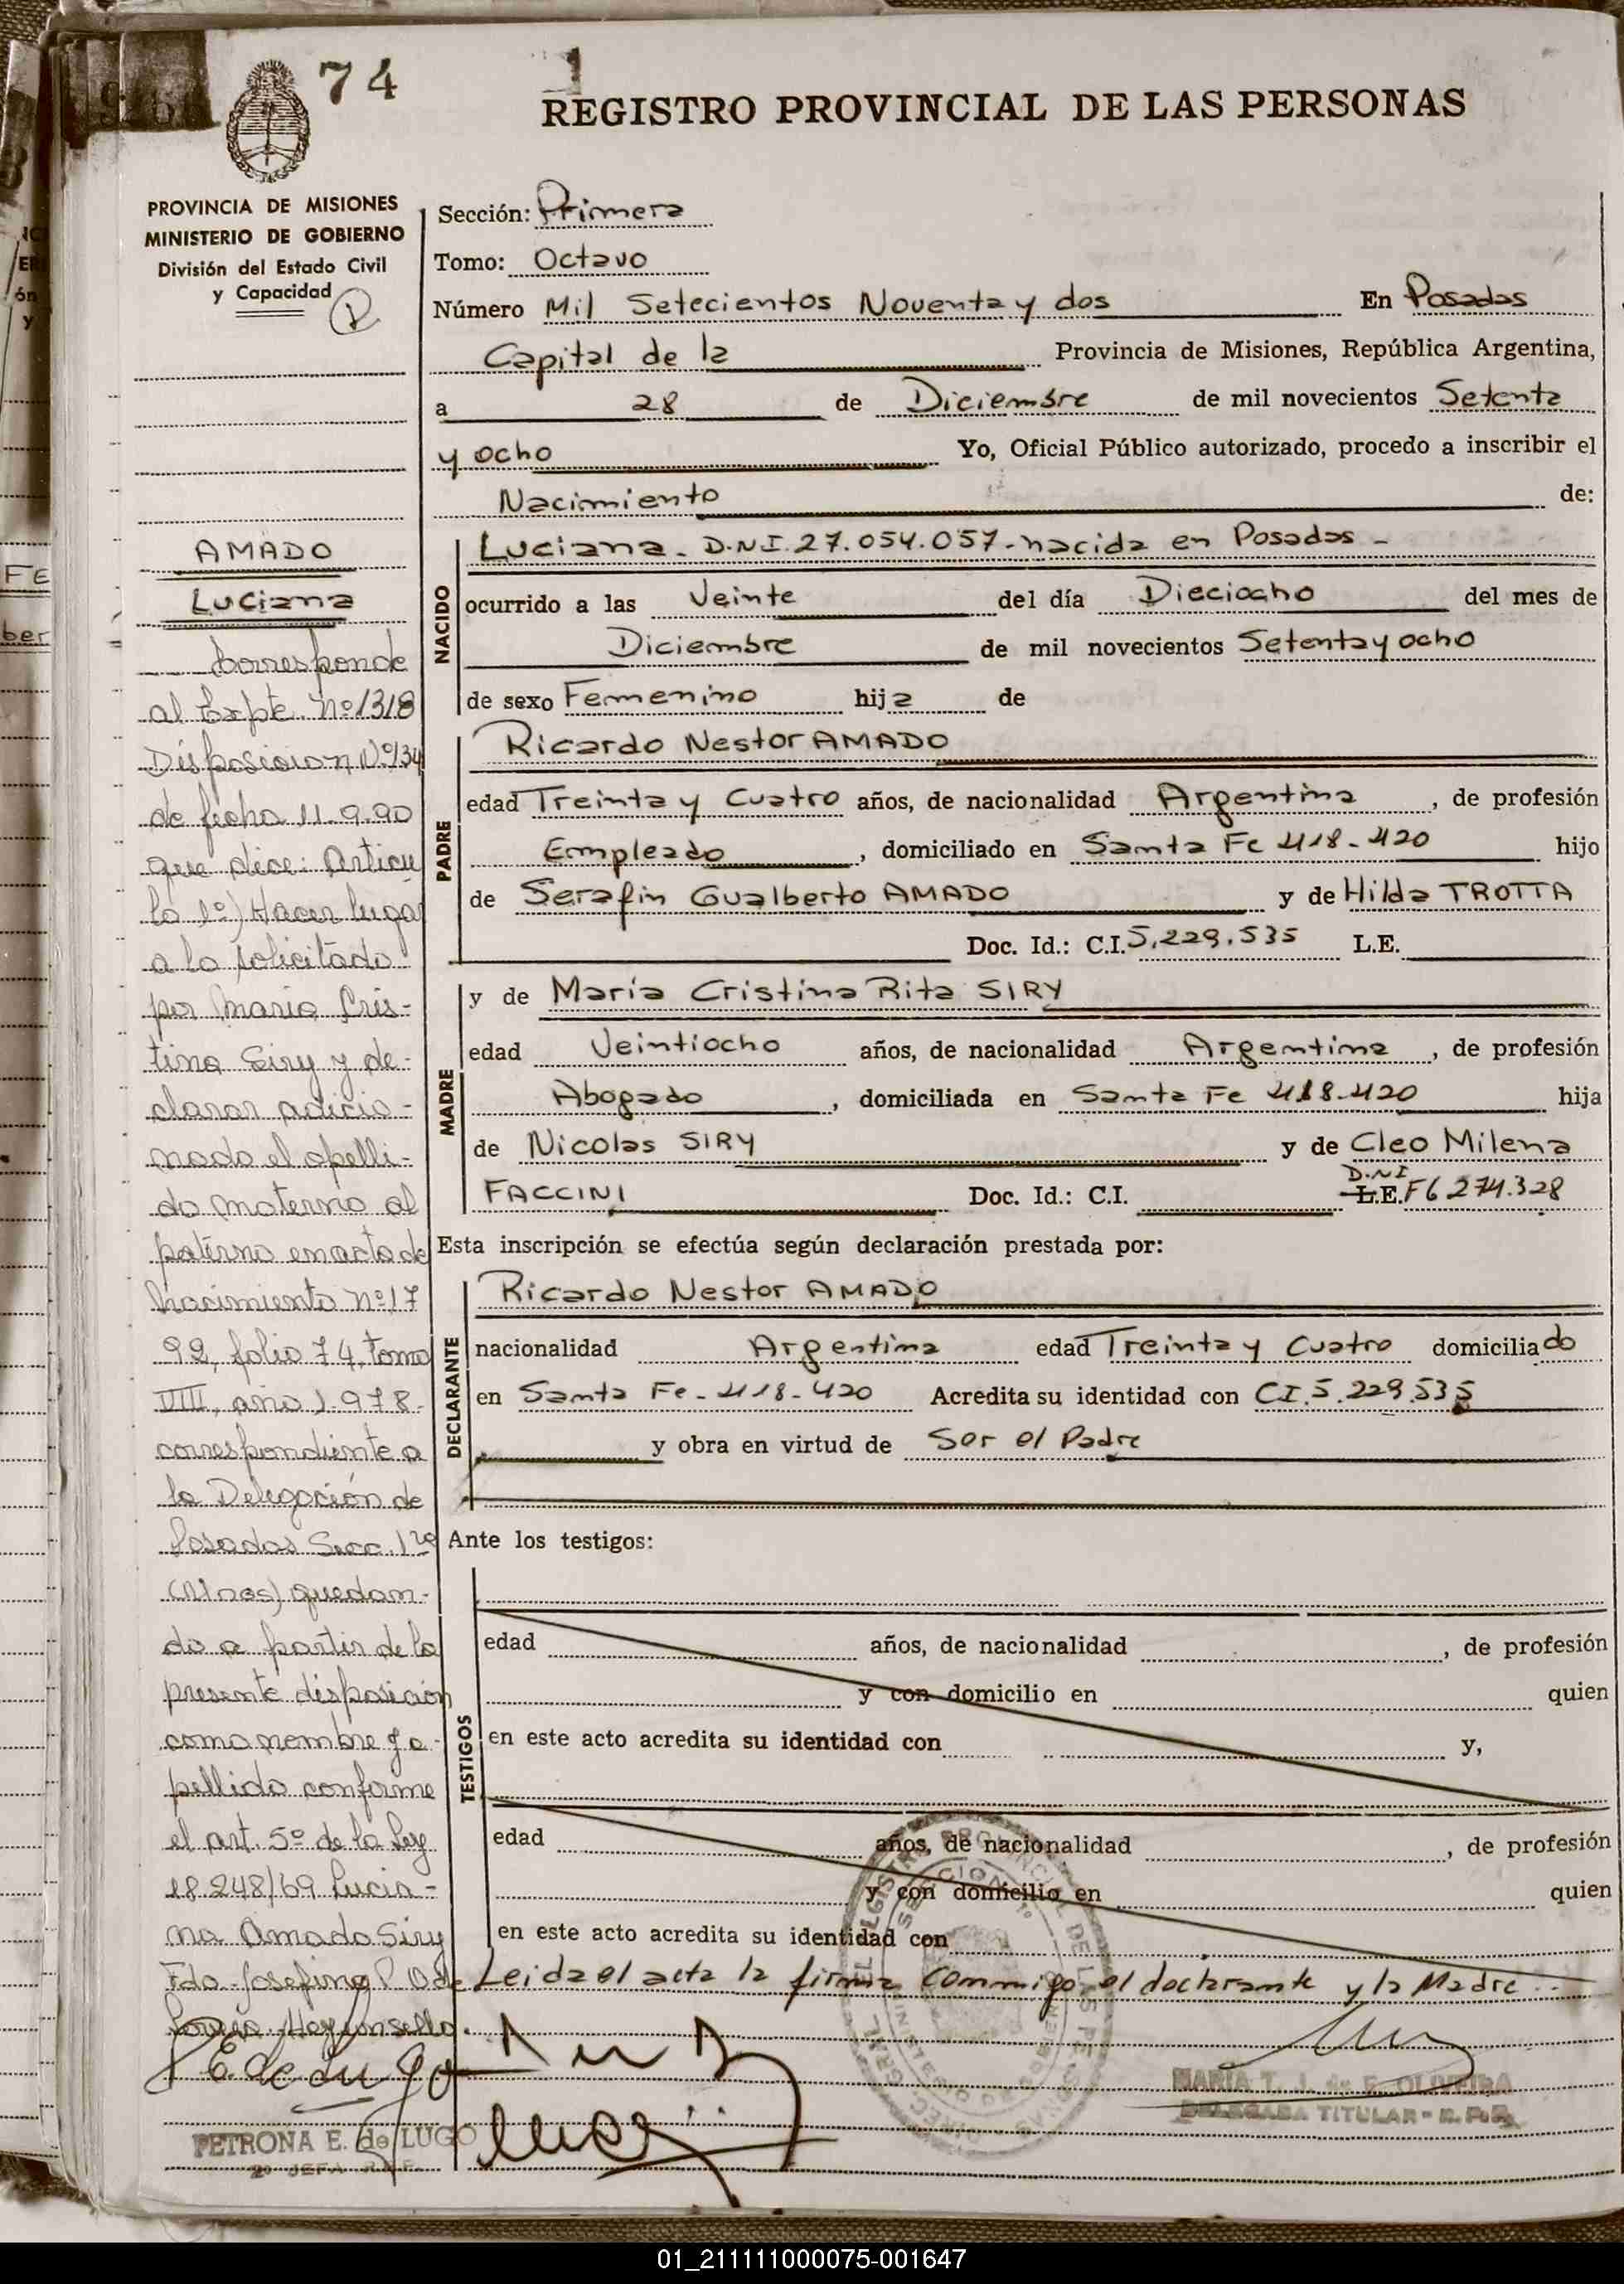 74
REGISTRO PROVINCIAL DE LAS PERSONAS
PROVINCIA DE MISIONES
MINISTERIO DE GOBIERNO
División del Estado Civil
y Capacidad
Sección: Primera
Tomo: Octavo
Número Mil Setecientos Noventa y dos En Posadas
Capital de la Provincia de Misiones, República Argentina,
a 28 de Diciembre de mil novecientos Setenta
y ocho Yo, Oficial Público autorizado, procedo a inscribir el
Nacimiento de:
NACIDO
Luciana - D.N.I. 27.054.057 - nacida en Posadas -
ocurrido a las Veinte del día Dieciocho del mes de
Diciembre de mil novecientos Setenta y ocho
de sexo Femenino hija de
PADRE
Ricardo Nestor AMADO
edad Treinta y Cuatro años, de nacionalidad Argentina, de profesión
Empleado, domiciliado en Santa Fe 418-420 hijo
de Serafin Gualberto AMADO y de Hilda TROTTA
Doc. Id.: C.I. 5.229.535 L.E.
MADRE
y de María Cristina Rita SIRY
edad Veintiocho años, de nacionalidad Argentina, de profesión
Abogado, domiciliada en Santa Fe 418-420 hija
de Nicolas SIRY y de Cleo Milena
D.N.I
FACCINI Doc. Id.: C.I. L.E. F6 274.328
Esta inscripción se efectúa según declaración prestada por:
DECLARANTE
Ricardo Nestor AMADO
nacionalidad Argentina edad Treinta y Cuatro domiciliado
en Santa Fe - 418-420 Acredita su identidad con CI. 5.229.535
y obra en virtud de Ser el Padre
Ante los testigos:
TESTIGOS
edad años, de nacionalidad , de profesión
y con domicilio en quien
en este acto acredita su identidad con y,
edad años, de nacionalidad , de profesión
y con domicilio en quien
en este acto acredita su identidad con
Leida el acta la firma conmigo el declarante y la Madre
MARIA T. J. de F. OLIVEIRA
DELEGADA TITULAR - R.P.P.
AMADO
Luciana
Corresponde
al Expte. Nº 1318
Disposicion Nº 134
de fecha 11.9.90
que dice: Articu
lo 1º) Hacer lugar
a lo solicitado
por Maria Cris-
tina Siry y de-
clarar adicio-
nado el apelli-
do materno al
paterno en acta de
Nacimiento nº 17
92, folio 74, tomo
VIII, año 1.978
correspondiente a
la Delegación de
Posadas Secc. 1ra
(Mnes) quedan-
do a partir de la
presente disposición
como nombre y a-
pellido conforme
el art. 5º de la Ley
18.248/69 Lucia-
na Amado Siry
Fdo. Josefina
PETRONA E. de LUGO
2º JEFA R.P.P.
01_211111000075-001647